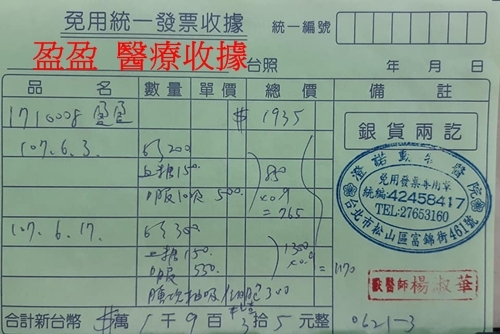 免用統一發票收據
統一編號
盈盈 醫療收據
台照 年 月 日
品名 數量 單價 總價 備註
1710008 盈盈 $ 1935
銀貨兩訖
107.6.3. 200
上藥150. 850
10次 500. x0.9
=765
107.6.17. 300
上藥150. 1300
550. x0.9 =1170
抽吸 細胞 300
澄諾動物醫院
免用發票專用章
統編:42458417
TEL:27653160
台北市松山區富錦街461號
獸醫師 楊淑華
合計新台幣 萬 1 千 9 百 3 拾 5 元整
0621-3